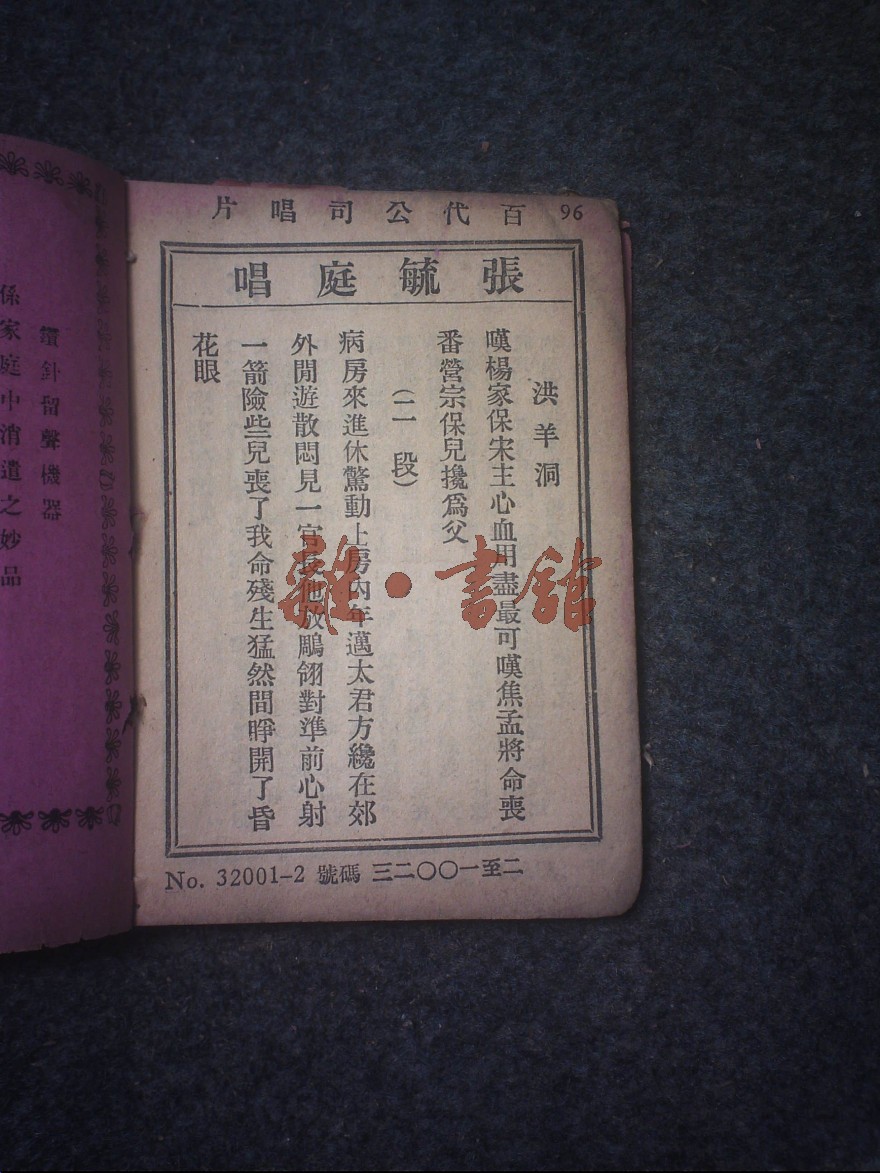 96
百代公司唱片
張毓庭唱
洪羊洞
嘆楊家保宋主心血用盡最可嘆焦孟將命喪
番營宗保兒攙爲父
(二段)
病房來進休驚動上房內年邁太君方纔在郊
外閒遊散悶見一官長他放鵰翎對準前心射
一箭險些兒喪了我命殘生猛然間睜開了昏
花眼
No. 32001-2 號碼 三二〇〇一至二
鑽針留聲機器
係家庭中消遣之妙品
雜·書館